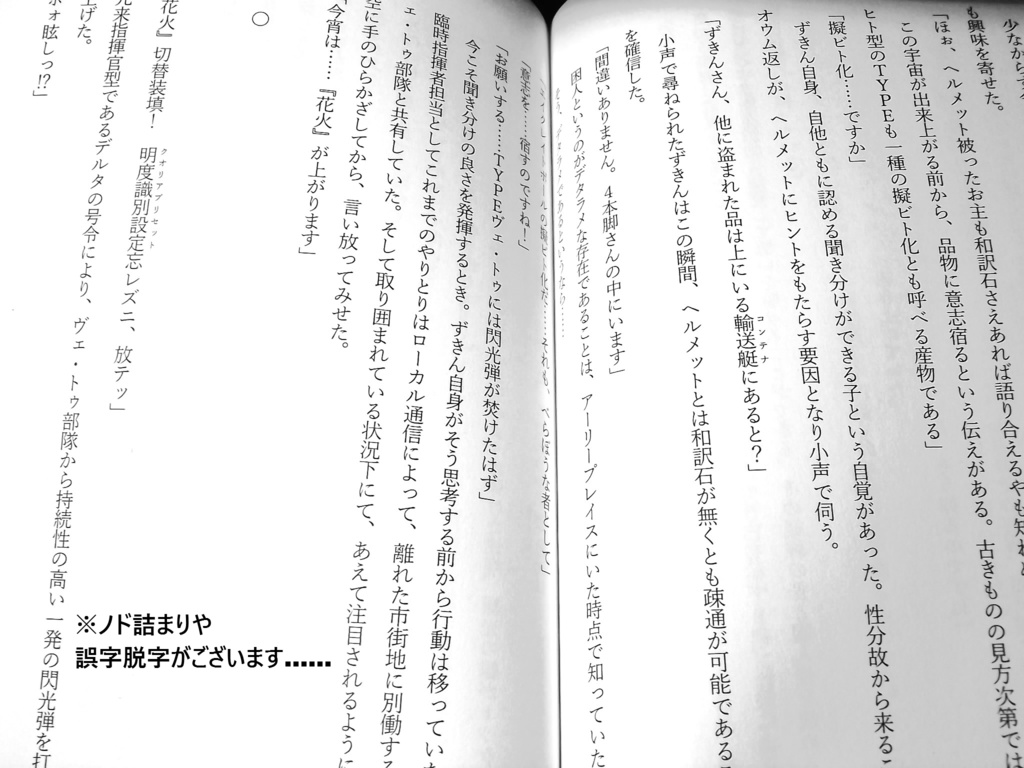 少なからず
も興味を寄せた。
「ほぉ、ヘルメット被ったお主も和訳石さえあれば語り合えるやも知れ
この宇宙が出来上がる前から、品物に意志宿るという伝えがある。古きものの見方次第では
ヒト型のTYPEも一種の擬ビト化とも呼べる産物である」
「擬ビト化……ですか」
ずきん自身、自他ともに認める聞き分けができる子という自覚があった。性分故から来るこ
オウム返しが、ヘルメットにヒントをもたらす要因となり小声で伺う。
「ずきんさん、他に盗まれた品は上にいる輸送艇にあると？」
コンテナ
小声で尋ねられたずきんはこの瞬間、ヘルメットとは和訳石が無くとも疎通が可能であるこ
を確信した。
「間違いありません。４本脚さんの中にいます」
困人というのがデタラメな存在であることは、アーリープレイスにいた時点で知っていた
化だ……それも、べらぼうな者として」
「意志を……宿すのですね！」
「お願いする……TYPEヴェ・トゥには閃光弾が焚けたはず」
今こそ聞き分けの良さを発揮するとき。ずきん自身がそう思考する前から行動は移ってい
臨時指揮者担当としてこれまでのやりとりはローカル通信によって、離れた市街地に別働す
ヴェ・トゥ部隊と共有していた。そして取り囲まれている状況下にて、あえて注目されるように
空に手のひらかざしてから、言い放ってみせた。
「今宵は……『花火』が上がります」
○
花火』切替装填！　明度識別設定忘レズニ、放テッ」
クオリアプリセット
元来指揮官型であるデルタの号令により、ヴェ・トゥ部隊から持続性の高い一発の閃光弾を打
上げた。
ォォ眩しっ!?」
※ノド詰まりや
誤字脱字がございます……